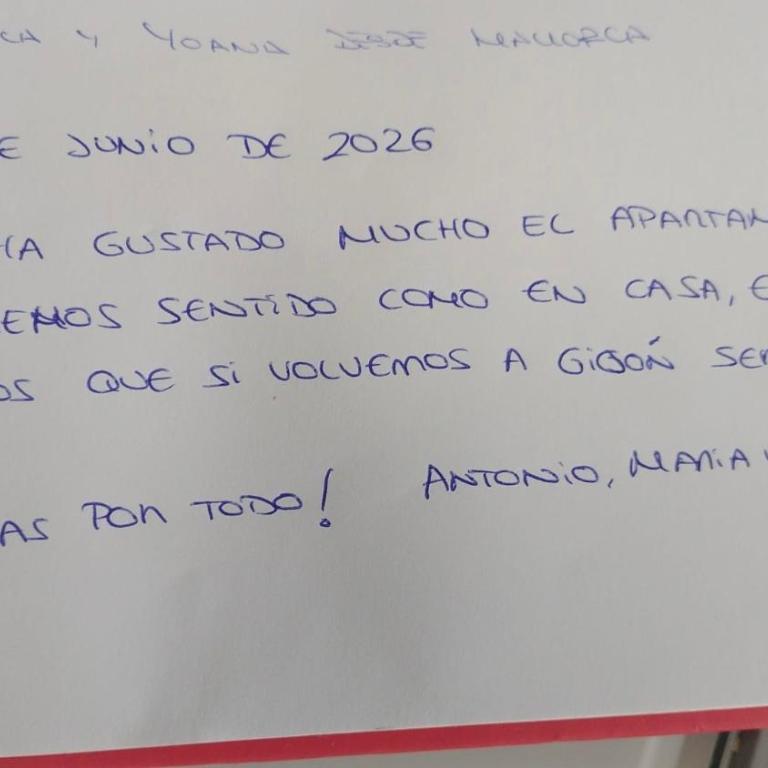 CA Y YOANA DESDE MALLORCA
E JUNIO DE 2026
HA GUSTADO MUCHO EL APARTAM
EMOS SENTIDO COMO EN CASA, E
OS QUE SI VOLVEMOS A GIJÓN SER
AS POR TODO! ANTONIO, MARIA